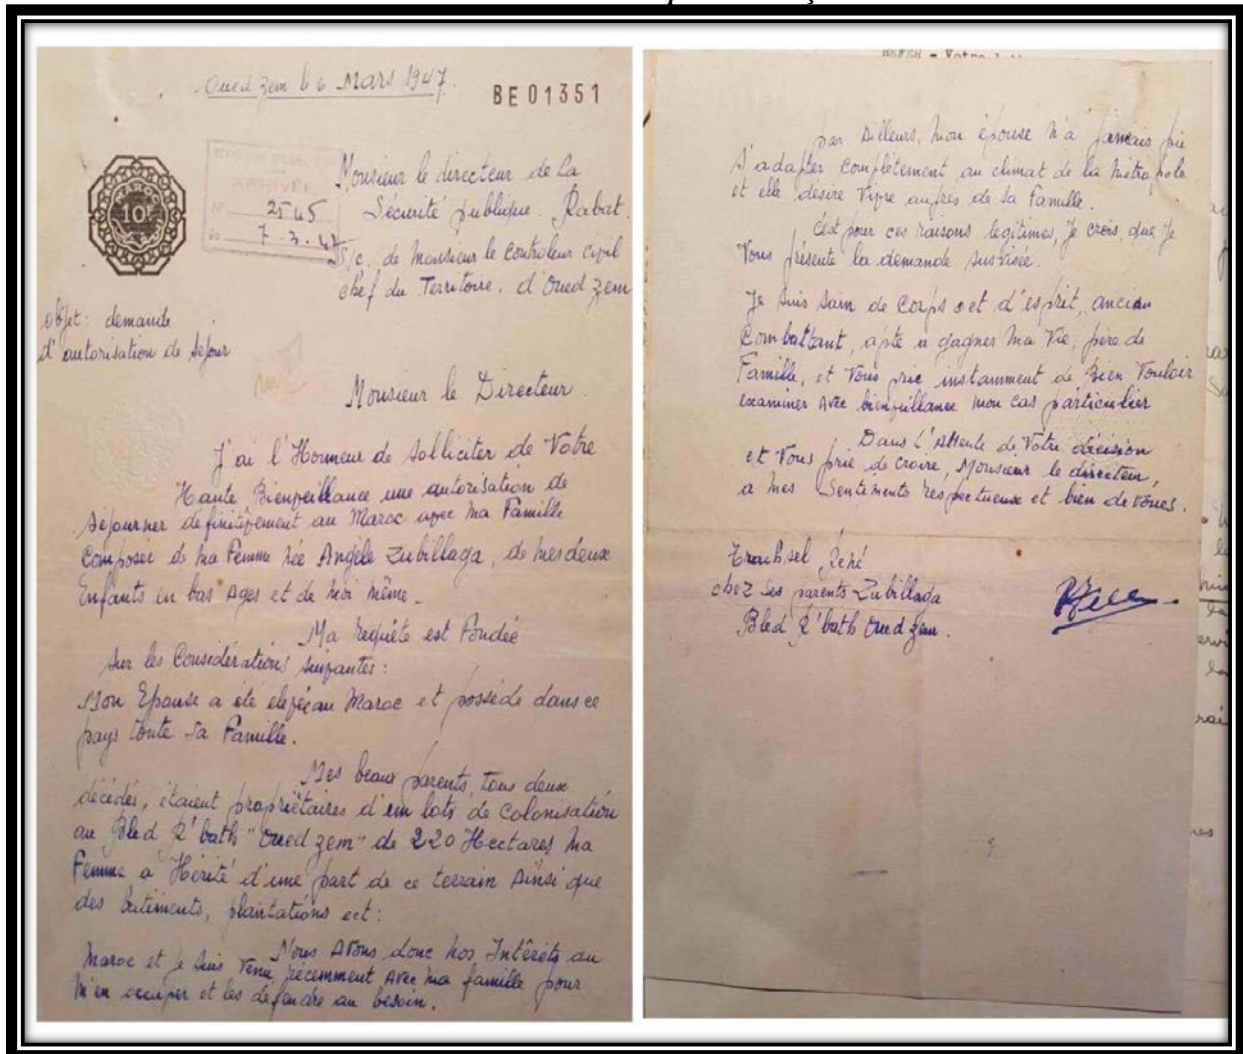 Oued zem le 6 Mars 1947.
BE 01351
MAROC
10F
ARRIVÉE
N° 2545
le 7.3.47
Monsieur le directeur de la
Sécurité publique. Rabat.
S/c. de Monsieur le Controleur civil
chef du Territoire. d'Oued zem
objet: demande
d'autorisation de séjour
Monsieur le Directeur.
J'ai l'Honneur de solliciter de Votre
Haute Bienveillance une autorisation de
séjourner définitivement au Maroc avec ma Famille
composée de ma Femme née Angèle Zubillaga, de mes deux
Enfants en bas Ages et de moi même.
Ma requête est Fondée
sur les Considérations suivantes:
Mon Epouse a été élevée au Maroc et possède dans ce
pays toute sa Famille.
Mes beaux parents, tous deux
décédés, étaient propriétaires d'un lots de Colonisation
au Bled R'bath "Oued zem" de 220 Hectares Ma
Femme a Hérité d'une part de ce terrain Ainsi que
des batiments, plantations ect:
Nous Avons donc nos Intêrets au
Maroc et je suis Venu récemment Avec ma famille pour
m'en occuper et les défendre au besoin.
par Ailleurs, mon épouse n'a jamais pu
s'adapter complètement au climat de la métropole
et elle desire Vivre auprès de sa Famille.
c'est pour ces raisons legitimes, Je crois, que Je
Vous présente la demande susvisée.
Je suis sain de Corps et d'esprit, ancien
Combattant, apte a gagner Ma Vie, père de
Famille, et Vous prie instamment de Bien Vouloir
examiner Avec bienveillance mon cas particulier
Dans l'Attente de Votre décision
et Vous prie de croire, Monsieur le directeur,
a mes Sentiments respectueux et bien devoués.
Trachsel René
chez Ses parents Zubillaga
Bled R'bath Oued zem.